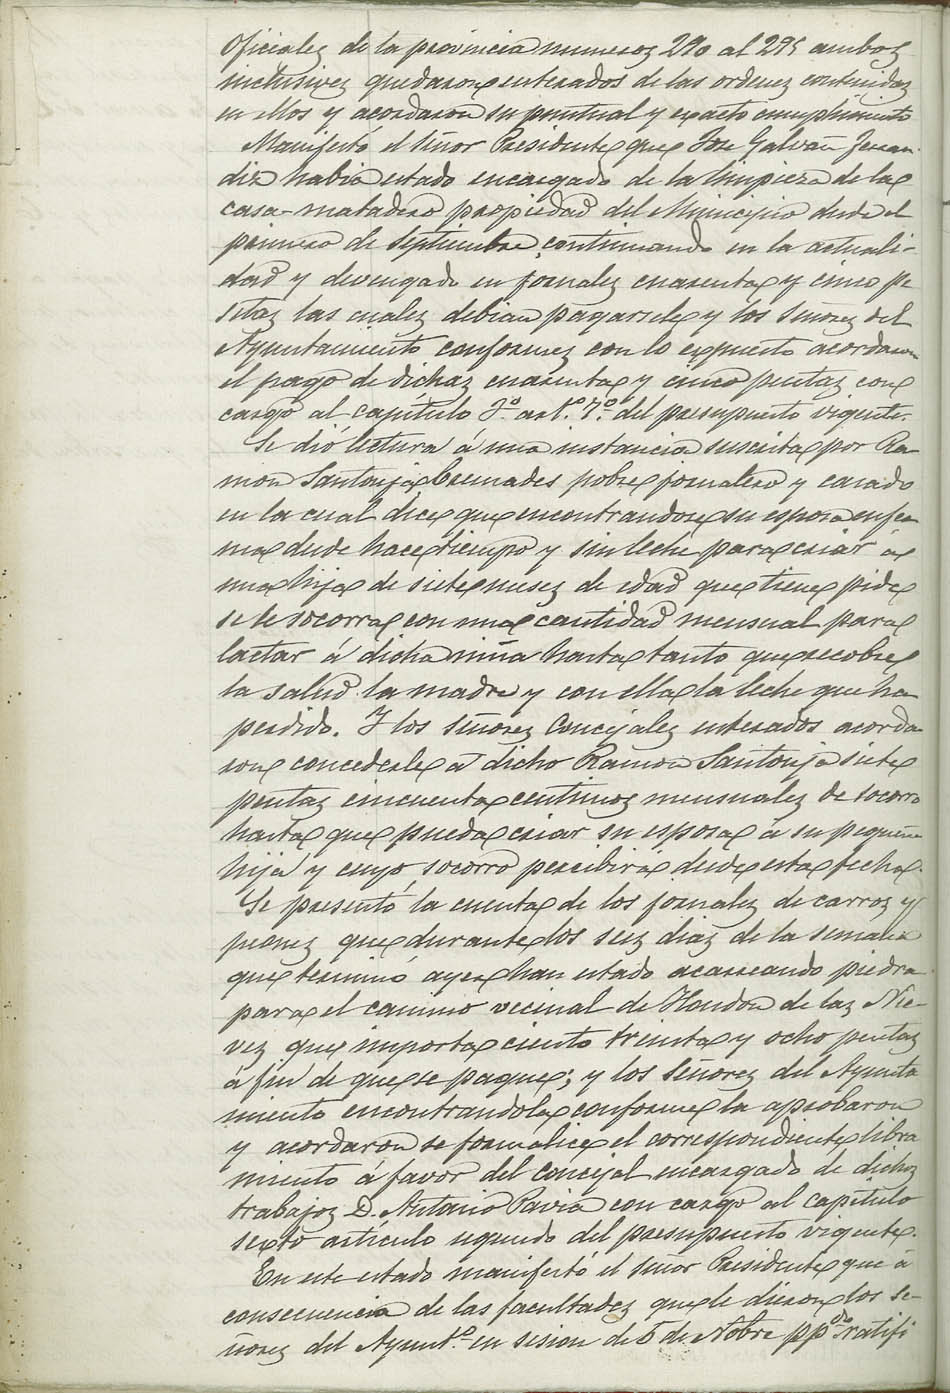 Oficiales de la provincia numeros 290 al 295 ambos
inclusives quedaron enterados de las ordenes contenidas
en ellos y acordaron su puntual y exacto cumplimiento
Manifestó el señor Presidente que José Galvañ Ferran-
diz habia estado encargado de la limpieza de la
casa-matadero propiedad del Municipio desde el
primero de Septiembre, continuando en la actuali-
dad y devengado en jornales cuarenta y cinco pe
setas las cuales debian pagarsele y los señores del
Ayuntamiento conformes con lo expuesto acordaron
el pago de dichas cuarenta y cinco pesetas con
cargo al capítulo 1º artº 7º del presupuesto vigente.
Se dió lectura á una instancia suscrita por Ra
mon Santonja Bernades pobre jornalero y casado
en la cual dice que encontrandose su esposa enfer
ma desde hace tiempo y sin leche para criar á
una hija de siete meses de edad que tiene pide
se le socorra con una cantidad mensual para
lactar á dicha niña hasta tanto que recobre
la salud la madre y con ella la leche que ha
perdido. Y los señores Concejales enterados acorda
ron concederle á dicho Ramon Santonja siete
pesetas cincuenta centimos mensuales de socorro
hasta que pueda criar su esposa á su pequeña
hija y cuyo socorro percibirá desde esta fecha.
Se presentó la cuenta de los jornales de carros y
peones que durante los seis dias de la semana
que terminó ayer han estado acarreando piedra
para el camino vecinal de Hondon de las Nie-
ves que importa ciento treinta y ocho pesetas
á fin de que se pague; y los Señores del Ayunta
miento encontrandola conforme la aprobaron
y acordaron se formalice el correspondiente libra
miento á favor del concejal encargado de dichos
trabajos D. Antonio Pavia con cargo al capítulo
sexto artículo segundo del presupuesto vigente.
En este estado manifestó el señor Presidente que á
consecuencia de las facultades que le dieron los se-
ñores del Ayuntº en sesion de 6 de Nobre ppdo ratifi